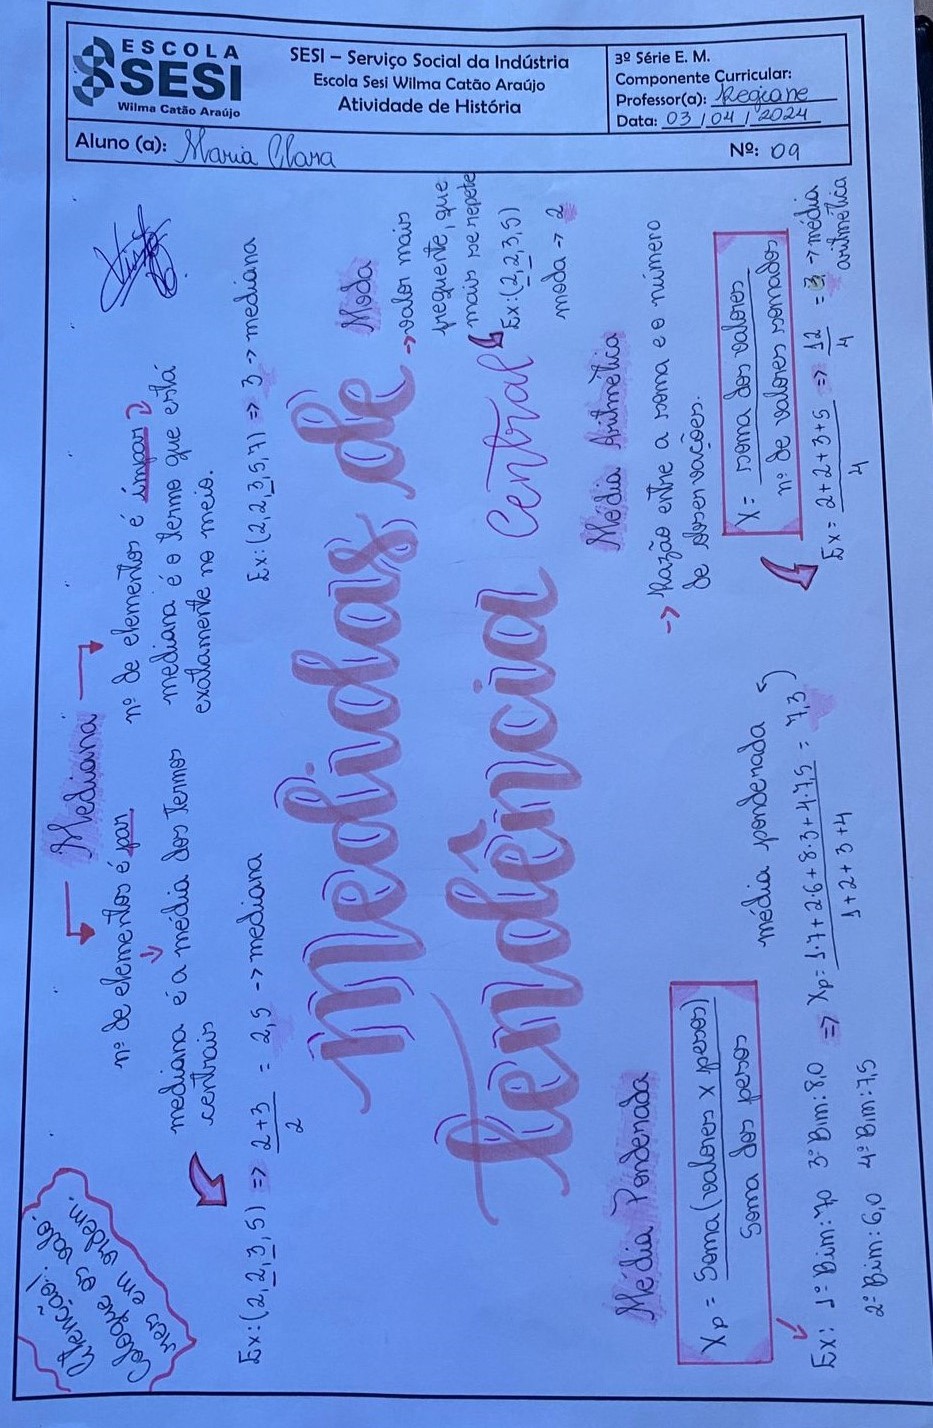 ESCOLA
SESI
Wilma Catão Araújo
SESI – Serviço Social da Indústria
Escola Sesi Wilma Catão Araújo
Atividade de História
3º Série E. M.
Componente Curricular:
Professor(a): Regiane
Data: 03/04/2024
Aluno (a): Maria Clara
Nº: 09
Atenção!
Coloque os valo-
res em ordem.
Mediana
nº de elementos é par
mediana é a média dos termos
centrais
Ex: (2, 2, 3, 5) => 2+3 = 2,5 -> mediana
2
nº de elementos é ímpar
mediana é o termo que está
exatamente no meio.
Ex: (2, 2, 3, 5, 7) => 3 -> mediana
Medidas de
tendência central
Moda
-> valor mais
frequente, que
mais se repete
Ex: (2, 2, 3, 5)
moda -> 2
Média Ponderada
Xp = Soma (valores x pesos)
Soma dos pesos
Ex: 1º Bim: 7,0 3º Bim: 8,0 => Xp = 1·7 + 2·6 + 8·3 + 4·7,5 = 7,3
1 + 2 + 3 + 4
2º Bim: 6,0 4º Bim: 7,5
média ponderada
Média Aritmética
-> Razão entre a soma e o número
de observações.
X = soma dos valores
nº de valores somados
Ex = 2 + 2 + 3 + 5 => 12 = 3 -> média
4 4 aritmética